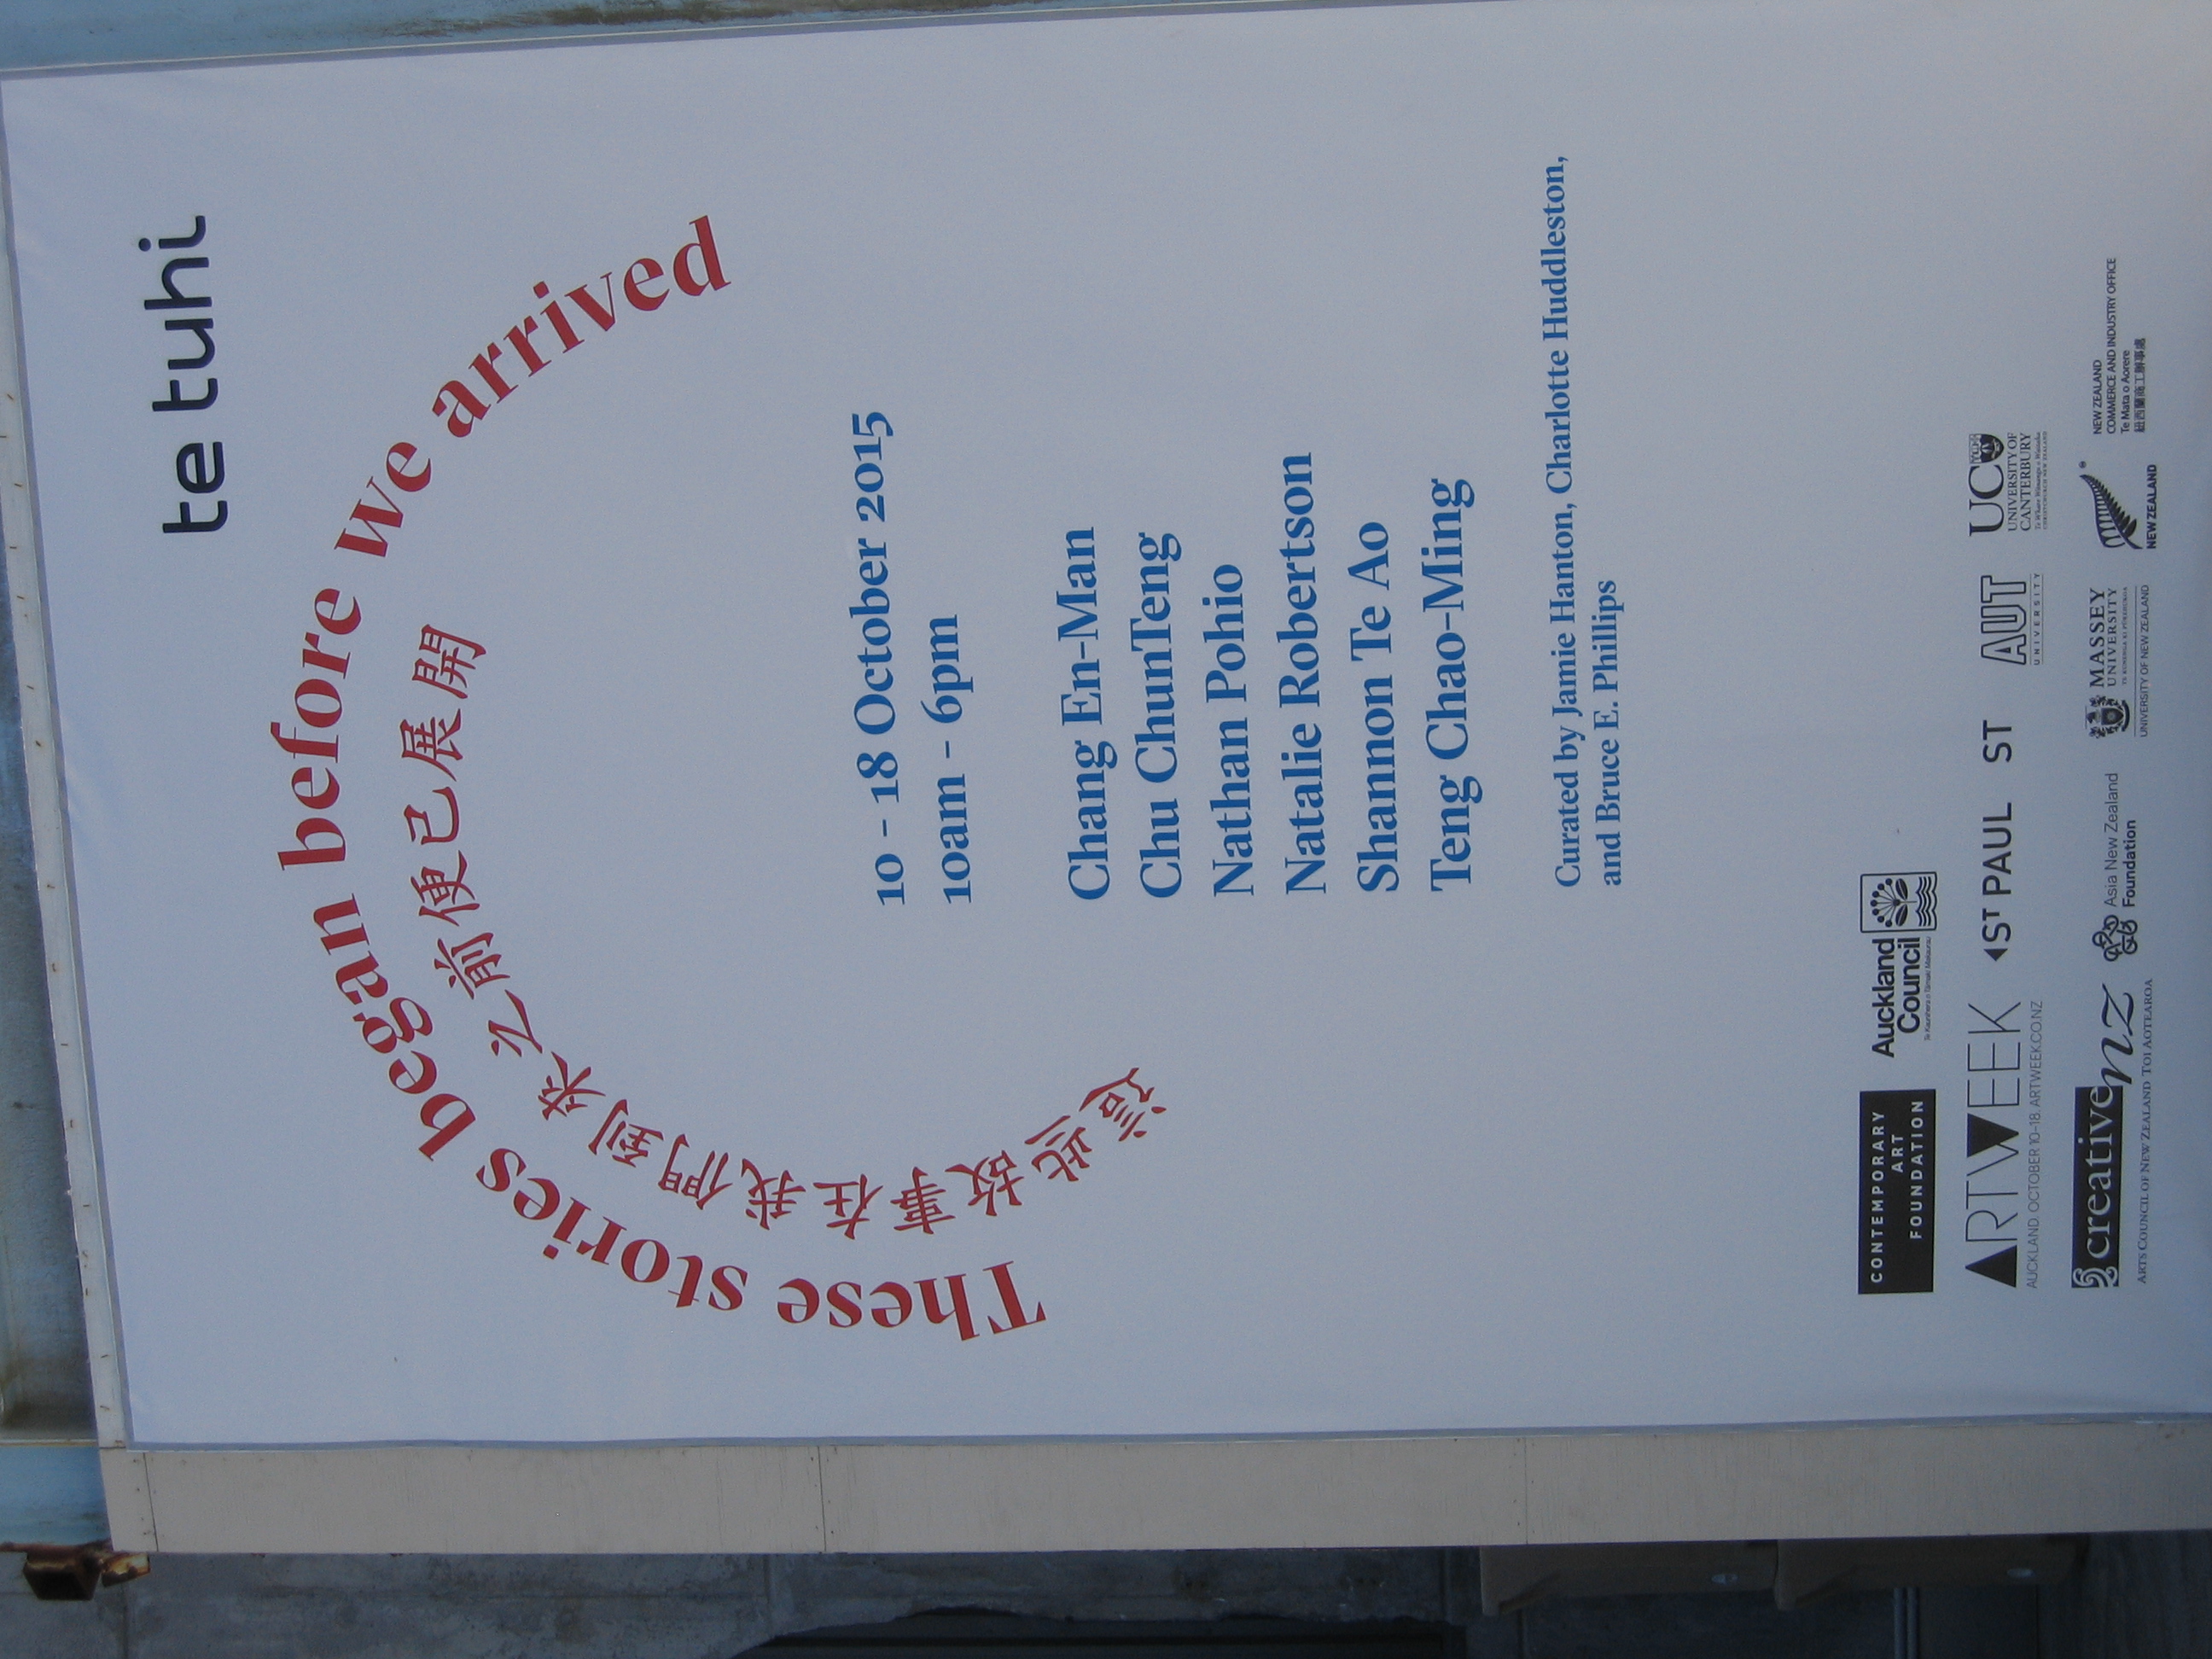 te tuhi
These stories began before we arrived
這些故事在我們到來之前便已展開
10 - 18 October 2015
10am - 6pm
Chang En-Man
Chu ChunTeng
Nathan Pohio
Natalie Robertson
Shannon Te Ao
Teng Chao-Ming
Curated by Jamie Hanton, Charlotte Huddleston,
and Bruce E. Phillips
CONTEMPORARY
ART
FOUNDATION
Auckland
Council
Te Kaunihera o Tāmaki Makaurau
ARTWEEK
AUCKLAND. OCTOBER 10-18. ARTWEEK.CO.NZ
ST PAUL ST
AUT
UNIVERSITY
UC
UNIVERSITY OF
CANTERBURY
Te Whare Wānanga o Waitaha
CHRISTCHURCH NEW ZEALAND
creative nz
ARTS COUNCIL OF NEW ZEALAND TOI AOTEAROA
Asia New Zealand
Foundation
MASSEY
UNIVERSITY
TE KUNENGA KI PŪREHUROA
UNIVERSITY OF NEW ZEALAND
NEW ZEALAND
NEW ZEALAND
COMMERCE AND INDUSTRY OFFICE
Te Mata o Aorere
紐西蘭商工辦事處